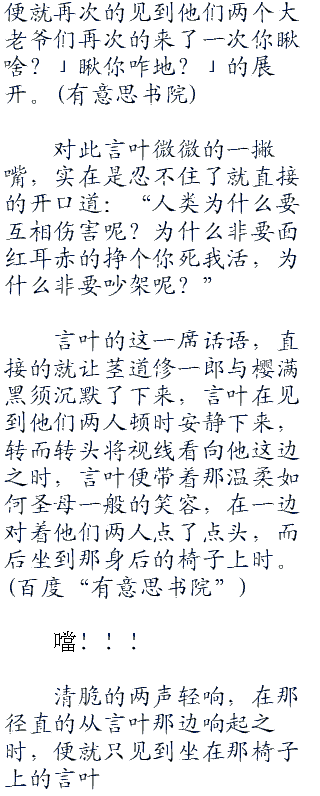 便就再次的见到他们两个大
老爷们再次的来了一次你瞅
啥？」瞅你咋地？」的展
开。(有意思书院)
对此言叶微微的一撇
嘴，实在是忍不住了就直接
的开口道：“人类为什么要
互相伤害呢？为什么非要面
红耳赤的挣个你死我活，为
什么非要吵架呢？”
言叶的这一席话语，直
接的就让茎道修一郎与樱满
黑须沉默了下来，言叶在见
到他们两人顿时安静下来，
转而转头将视线看向他这边
之时，言叶便带着那温柔如
何圣母一般的笑容，在一边
对着他们两人点了点头，而
后坐到那身后的椅子上时。
(百度“有意思书院”)
噹！！！
清脆的两声轻响，在那
径直的从言叶那边响起之
时，便就只见到坐在那椅子
上的言叶